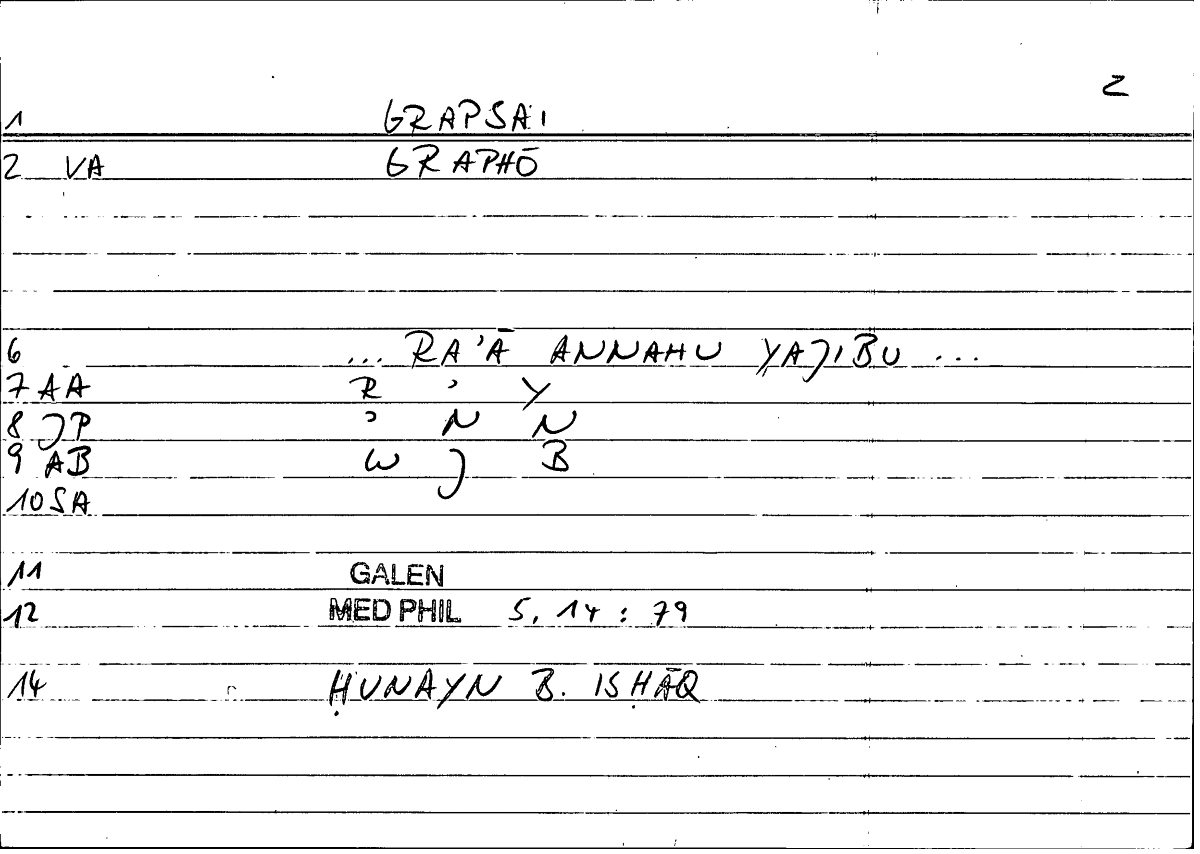 2
1 GRAPSAI
2 VA GRAPHŌ
6 ... RA'Ā ANNAHU YAJIBU ...
7 AA R ' Y
8 JP ' N N
9 AB W J B
10 SA
11 GALEN
12 MED PHIL 5, 14 : 79
14 ḤUNAYN B. ISḤĀQ